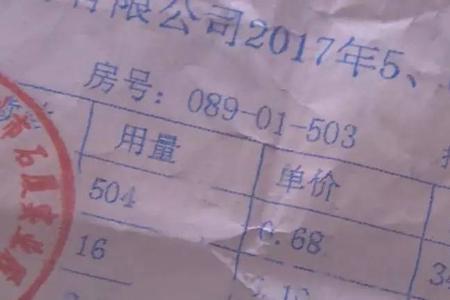 有限公司2017年5、
房号：089-01-503
用量 单价
504 0.68 34
16